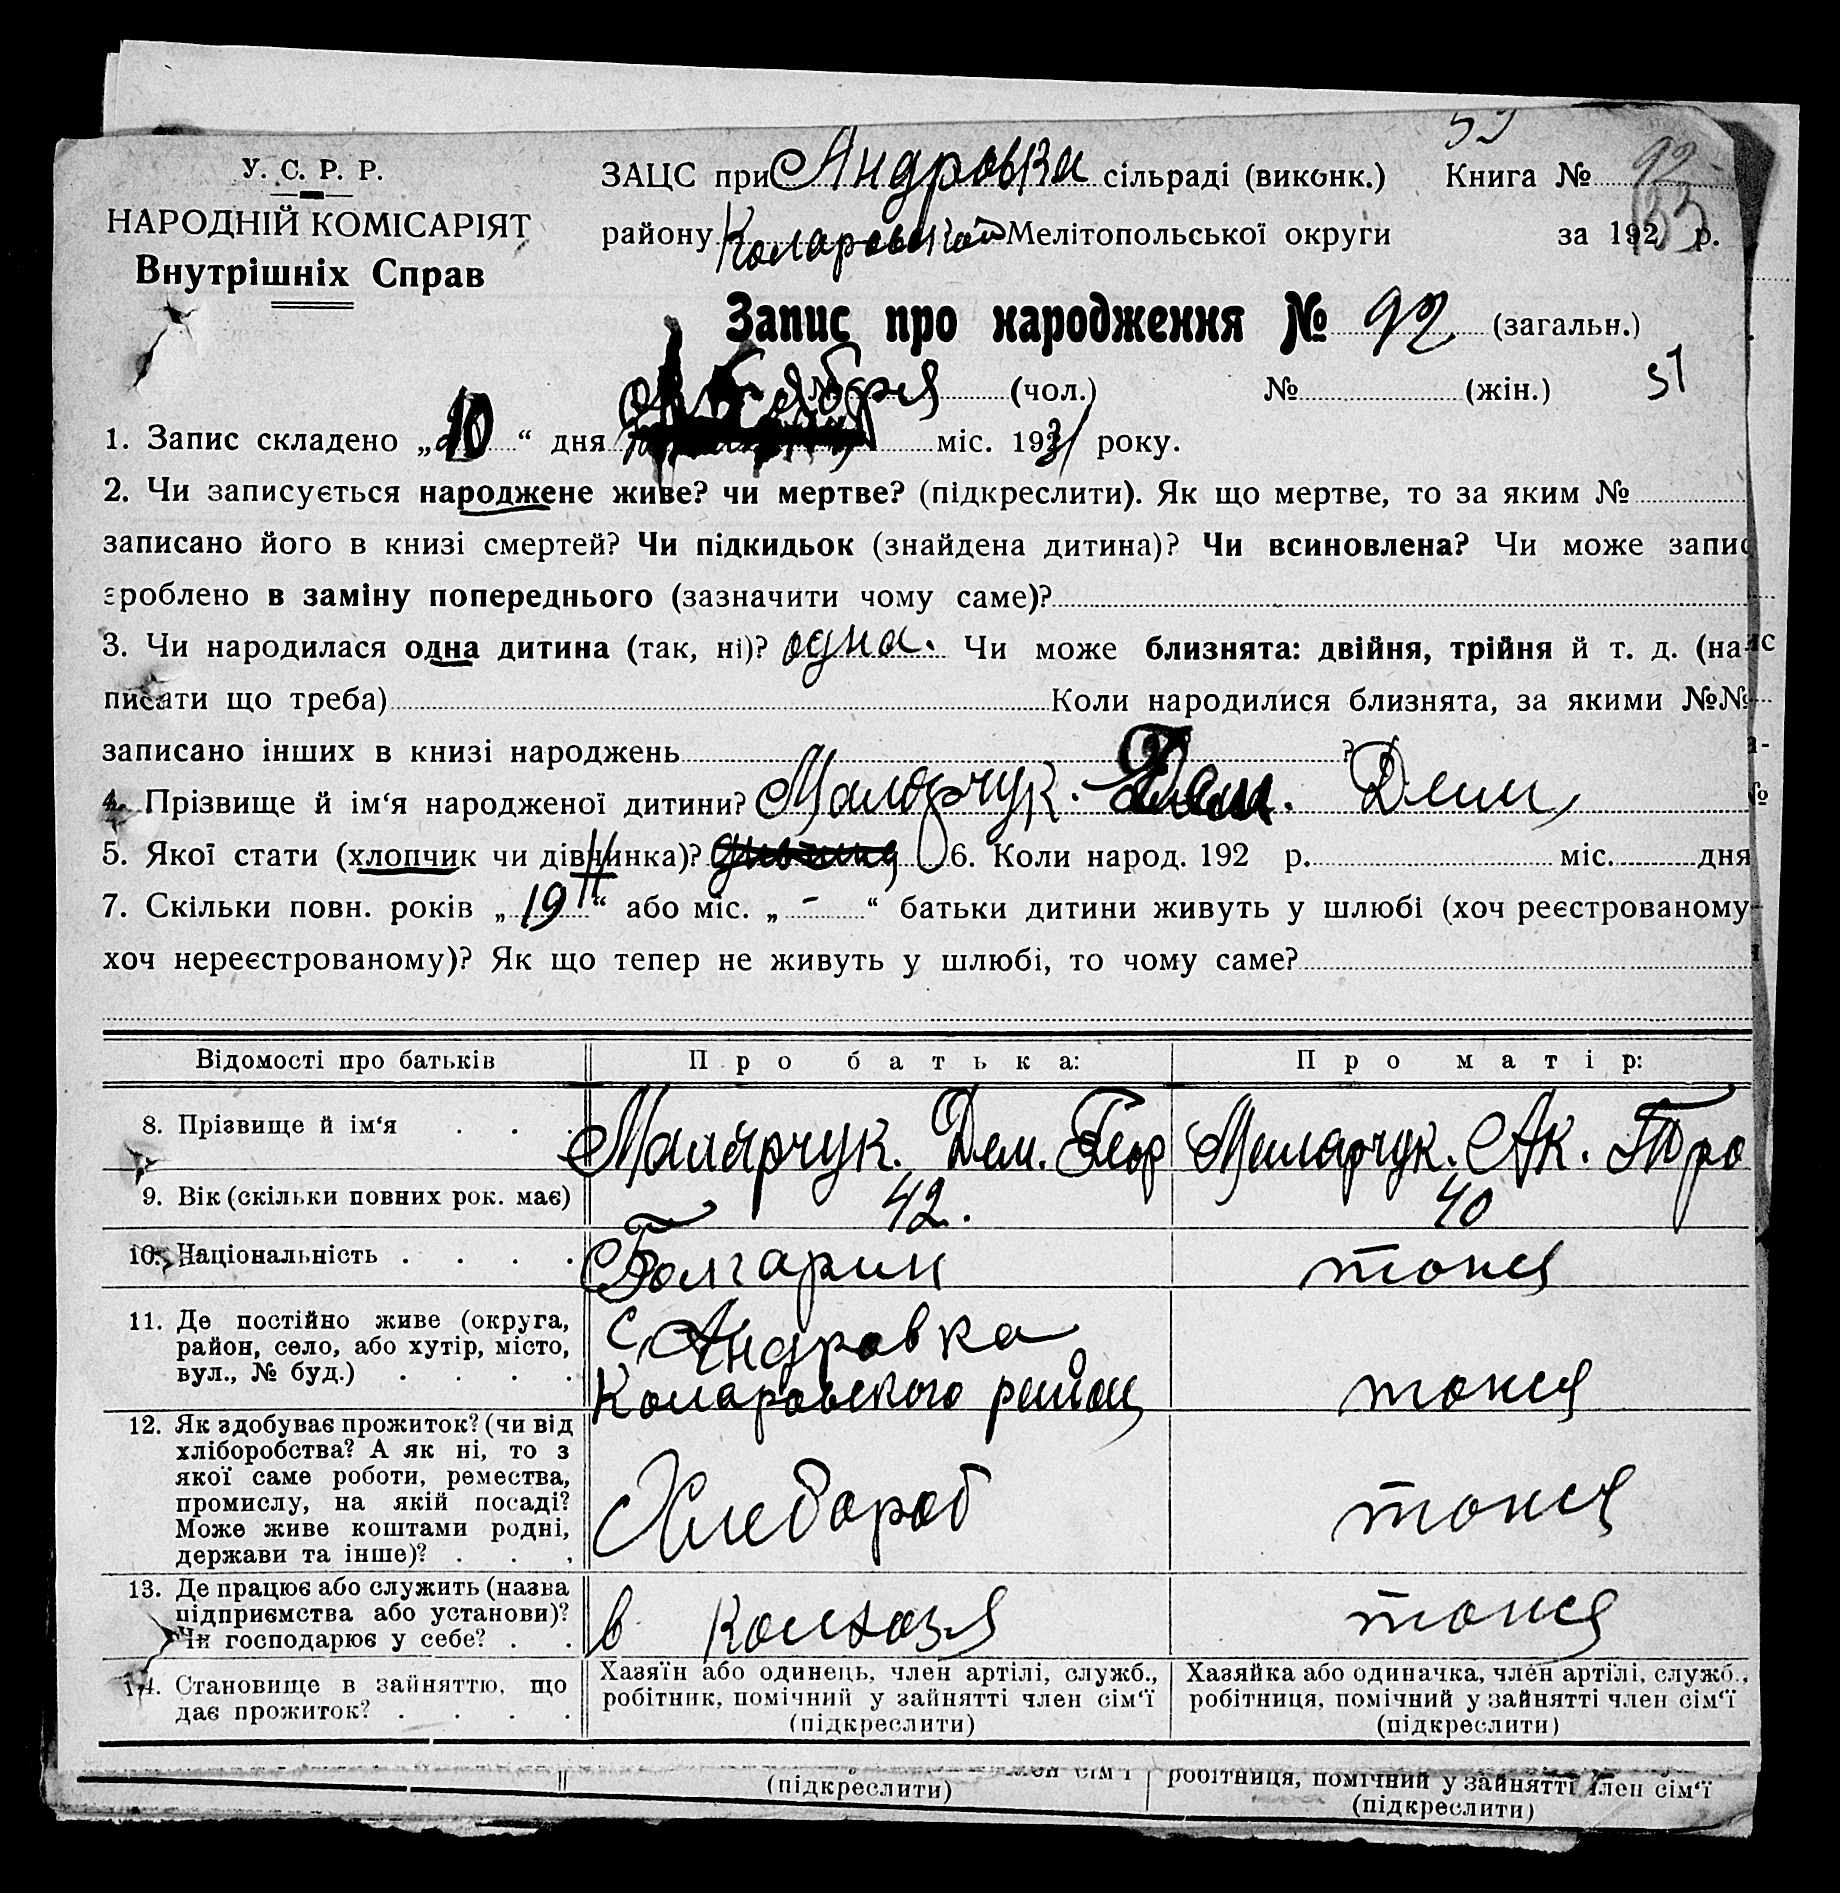 У. С. Р. Р.
НАРОДНІЙ КОМІСАРІЯТ
Внутрішніх Справ
ЗАЦС при Андровки сільраді (виконк.) Книга №
92
району Коларовской Мелітопольської округи за 192 р.
Запис про народження № 92 (загальн.)
Октября № (чол.) № (жін.) 51
1. Запис складено „10“ дня міс. 1931 року.
2. Чи записується народжене живе? чи мертве? (підкреслити). Як що мертве, то за яким №
записано його в книзі смертей? Чи підкидьок (знайдена дитина)? Чи всиновлена? Чи може запис
зроблено в заміну попереднього (зазначити чому саме)?
3. Чи народилася одна дитина (так, ні)? одна. Чи може близнята: двійня, трійня й т. д. (на-
писати що треба) Коли народилися близнята, за якими №№
записано інших в книзі народжень ?
4. Прізвище й ім‘я народженої дитини? Малярчук. Дем
5. Якої стати (хлопчик чи дівчинка)? 6. Коли народ. 192 р. міс. дня
7. Скільки повн. років „19“ або міс. „-“ батьки дитини живуть у шлюбі (хоч реєстрованому
хоч нереєстрованому)? Як що тепер не живуть у шлюбі, то чому саме?
Відомості про батьків Про батька: Про матір:
8. Прізвище й ім‘я Малярчук. Дем. Геор Малярчук. Ак. Тро
9. Вік (скільки повних рок. має) 42. 40
10. Національність Болгарин тоже
11. Де постійно живе (округа, район, село, або хутір, місто, вул., № буд.) с. Андровка
Коларовского район тоже
12. Як здобуває прожиток? (чи від
хліборобства? А як ні, то з
якої саме роботи, ремества,
промислу, на якій посаді?
Може живе коштами родні,
держави та інше)? Хлебороб тоже
13. Де працює або служить (назва
підприємства або установи)?
Чи господарює у себе? в колхозя тоже
14. Становище в зайняттю, що
дає прожиток?
Хазяїн або одинець, член артілі, служб.,
робітник, помічний у зайнятті член сім‘ї
(підкреслити)
Хазяйка або одиначка, член артілі, служб.,
робітниця, помічний у зайнятті член сім‘ї
(підкреслити)
(підкреслити)
робітниця, помічний у зайнятті член сім‘ї
(підкреслити)